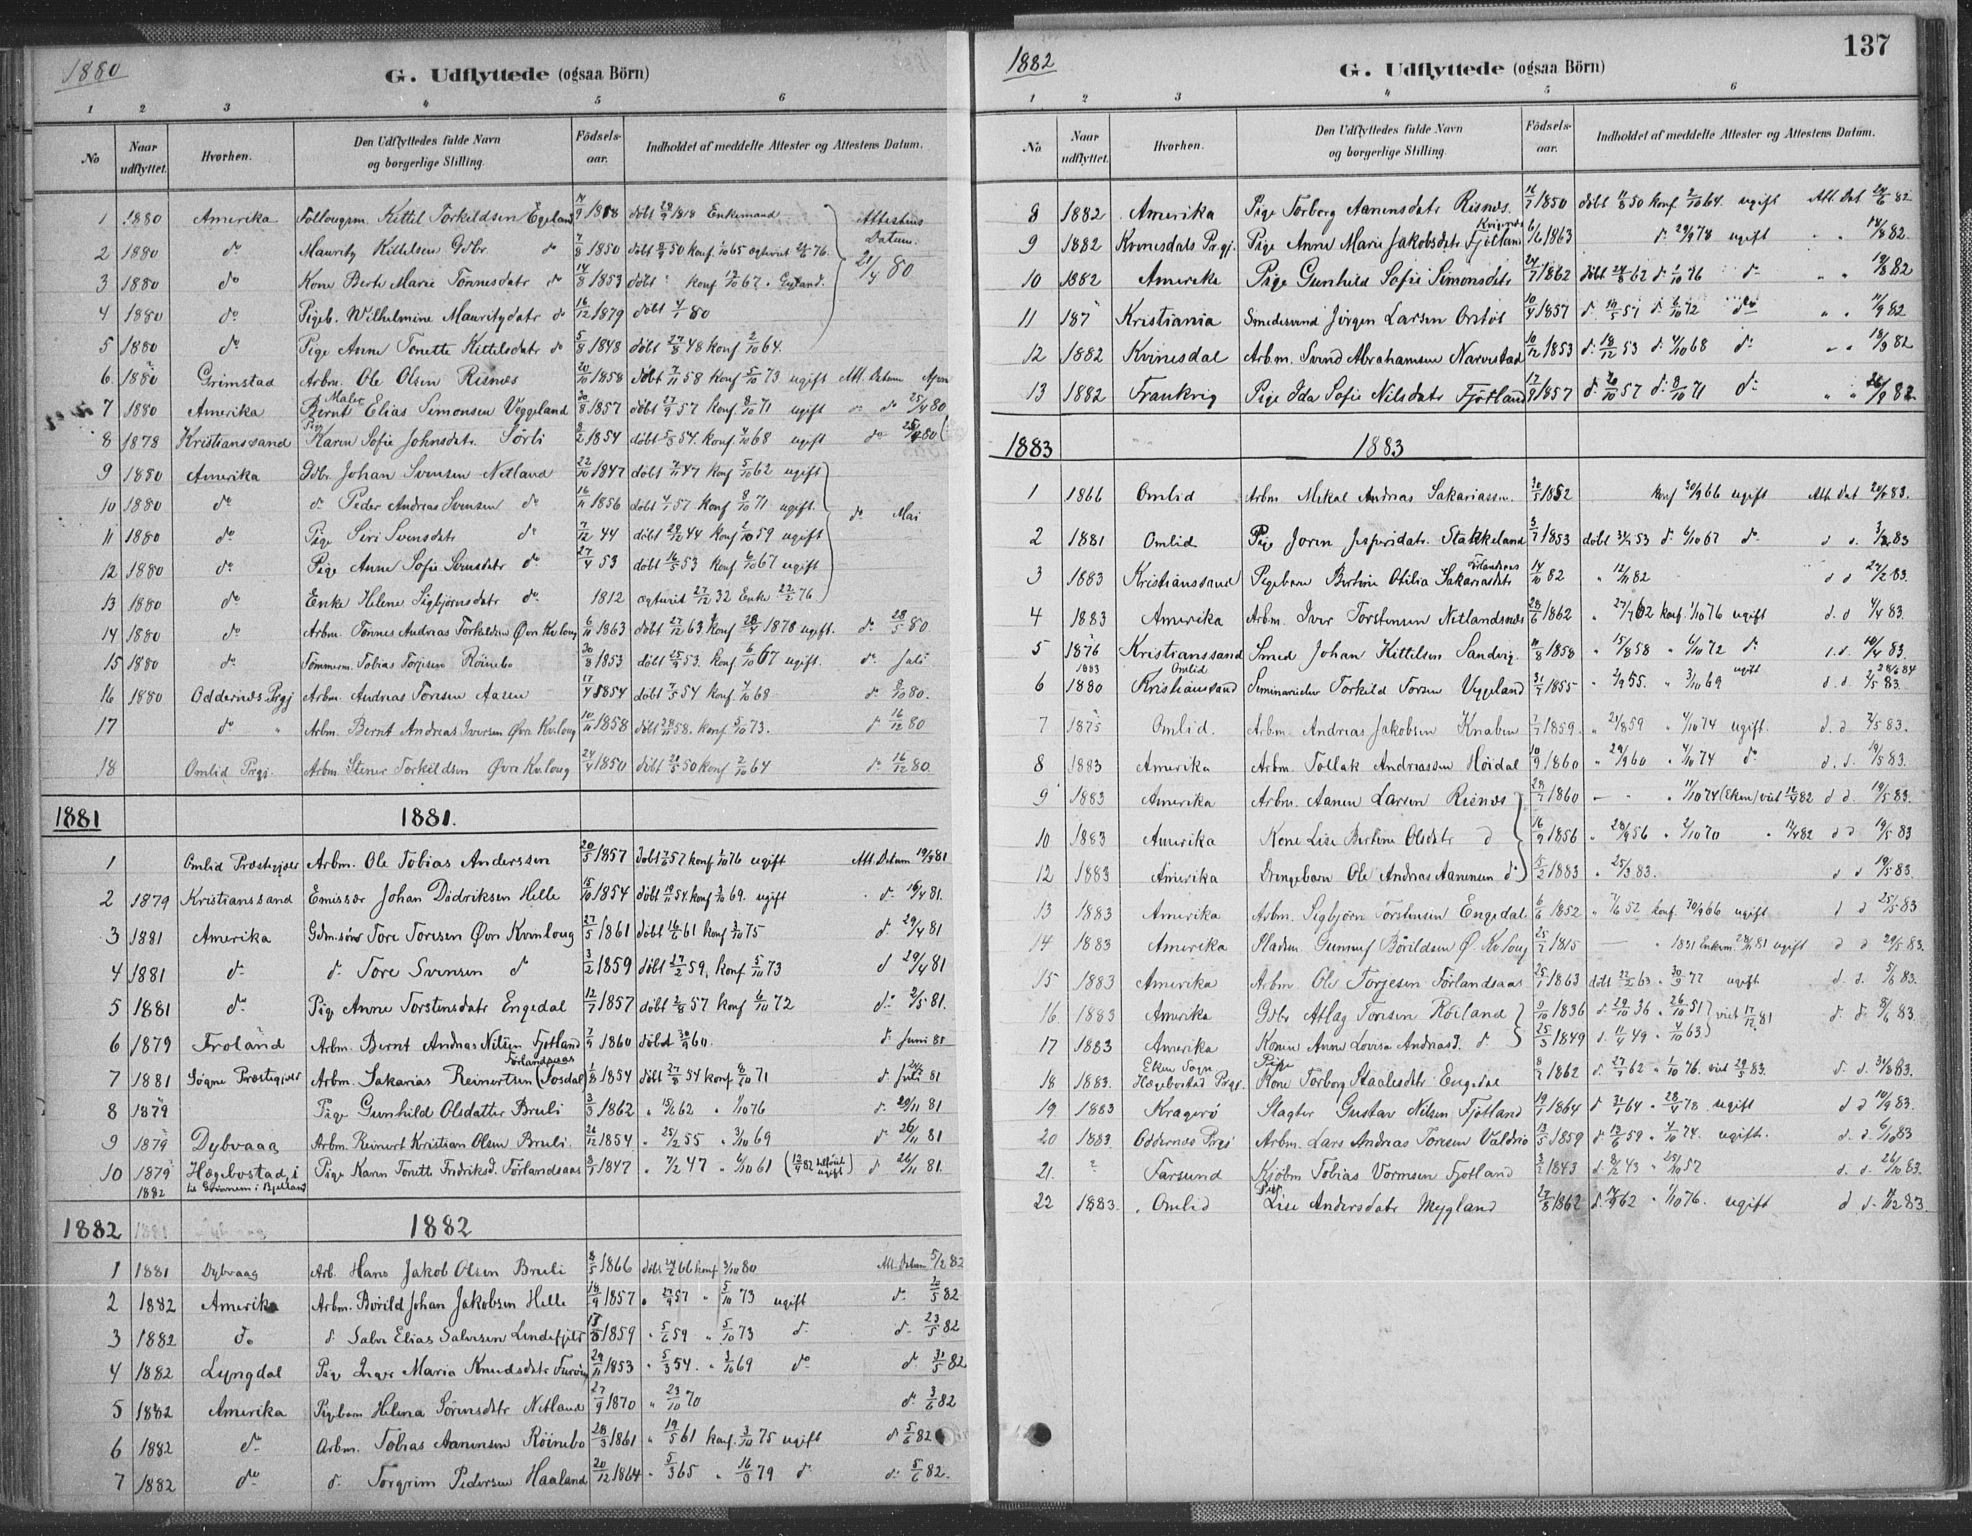 1880
G. Udflyttede (ogsaa Börn)
1 2 3 4 5 6
No Naar udflyttet. Hvorhen. Den Udflyttedes fulde Navn og borgerlige Stilling. Födsels-aar. Indholdet af meddelte Attester og Attestens Datum.
1 1880 Amerika Follougsm. Kittil Torkildsen Egeland 1818 döbt 1818 Enkemand Attestens Datum. 21/4 80
2 1880 do Mauritz Kittelsen Gdbr. do 7/8 1850 döbt 50 konf. 65 egteviet 76.
3 1880 do Kone Berte Marie Tönnesdatr do 14/8 1853 döbt " konf 67
4 1880 do Pigeb. Wilhelmine Mauritzdatr do 16/12 1879 döbt 4/1 80
5 1880 do Pige Anne Tonette Kittelsdatr do 5/8 1848 döbt 27/8 48 konf 2/10 64.
6 1880 Grimstad Arbm. Ole Olsen Risnæs 20/10 1858 döbt 7/11 58 konf 5/10 73 ugift Att. Datum
7 1880 Amerika Maler Bernt Elias Simonsen Veggeland 30/8 1857 döbt 27/9 57 konf 8/10 71 ugift do 25/4 80
8 1878 Kristianssand Pige Karen Sofie Johnsdatr. Sörli 8/2 1854 döbt 5/8 54. konf 4/10 68 ugift do 80
9 1880 Amerika Gdbr. Johan Svensen Netland 22/10 1847 döbt 7/11 47 konf 5/10 62 ugift
10 1880 do do Peder Andreas Svensen do 16/11 1856 döbt 4/1 57. konf 8/10 71 ugift. do Mai
11 1880 do Pige Siri Svensdatr do 7/12 44 döbt 29/12 44 konf 2/10 59 ugift
12 1880 do Pige Anne Sofie Svensdatr do 27/4 53 döbt 16/5 53 konf 6/10 67 ugift
13 1880 do Enke Helene Sigbjörnsdatr do 1812 egteviet 27/12 32 Enke 22/2 76
14 1880 do Arbm. Tönnes Andreas Torkildsen Övr. Kv.loug 6/11 1863 döbt 27/12 63 konf 28/4 1878 ugift. do 28/5 80
15 1880 do Tömmerm. Tobias Torjesen Röinebo 30/8 1853 döbt 25/9 53. konf 6/10 67 ugift. do Juli
16 1880 Oddernæs Prgj Arbm. Andreas Toresen Aasen 17/4 1854 döbt 7/5 54 konf 4/10 68 do 8/10 80.
17 do " Arbm. Bernt Andreas Iversen Övr. Kv.loug 10/11 1858 döbt 28/11 58. konf 5/10 73. do 16/12 80
18 Omlid Prgj. Arbm. Stener Torkildsen Övr. Kv.loug 24/4 1850 döbt 21/5 50 konf 2/10 64 do 16/12 80.
1881 1881.
1 Omlid Præstegjeld Arbm. Ole Tobias Anderssen 20/5 1857 döbt 7/6 57 konf 1/10 76 ugift Att. Datum 81
2 1879 Kristianssand Emissær Johan Didriksen Helle 15/10 1854 döbt 19/11 54. konf 3/10 69. ugift do 16/4 81.
3 1881 Amerika Gdm.sön Tore Toresen Övr. Kvinloug 27/5 1861 döbt 16/6 61 konf 3/10 75 do 29/4 81
4 1881 do do Tore Svensen do 3/2 1859 döbt 27/2 59, konf 5/10 73 d 29/4 81
5 1881 do Pige Anne Torstensdatr Engedal 12/7 1857 döbt 2/8 57 konf 6/10 72 do 2/5 81.
6 1879 Froland Arbm. Bernt Andreas Nilsen Fjotland 7/9 1860 döbt 30/9 60. do Juni 81
7 1881 Sögne Præstegjeld Arbm. Sakarias Reinertsen (Josdal Förlandsaas 1/8 1854 döbt 27/8 54 konf 8/10 71 do Juli 81
8 1879 Pige Gunhild Olsdatter Bruli 3/3 1862 " 15/6 62 " 1/10 76 do 29/11 81
9 1879 Dybvaag Arbm. Reinert Kristian Olsen Bruli. 26/12 1854 " 25/2 55 " 3/10 69 do 26/11 81
10 1879 1882 Hægebostad, i Pige Karen Tonette Fredriksd. Förlandsaas 8/1 1847 " 7/2 47 " 6/10 61 do 26/11 81.
1882 1882
1 1881 Dybvaag Arb. Hans Jakob Olsen Bruli 8/5 1866 döbt 66 konf 3/10 80 Att. Datum 5/2 82
2 1882 Amerika Arbm. Börild Johan Jakobsen Helle 18/9 1857 " 27/9 57 " 5/10 73 ugift do 20/5 82
3 1882 do do Salve Elias Salvesen Lindefjeld 1859 " 5/6 59 " 5/10 73 do do 23/5 82
4 1882 Lyngdal Pige Inger Maria Knudsdatr 29/11 1853 " 5/3 54. " 3/10 69 do do 31/5 82
5 1882 Amerika Pigebarn Helena Sörensdatr Netland 27/9 1870 " 23/10 70 do 3/6 82
6 1882 do Arbm. Tobias Aanensen Röinebo 28/3 1861 " 19/5 61 konf. 3/10 75 ugift do 5/6 82
7 1882 do do Torgrim Pedersen Haaland 20/12 1864 " 5/3 65 " 16/3 79 do do 5/6 82.
137
1882
G. Udflyttede (ogsaa Börn)
1 2 3 4 5 6
No Naar udflyttet. Hvorhen. Den Udflyttedes fulde Navn og borgerlige Stilling. Födsels-aar. Indholdet af meddelte Attester og Attestens Datum.
8 1882 Amerika Pige Torborg Aanensdatr Risnæs. 1850 döbt 50 konf 2/10 64. ugift Att. Dat 82
9 1882 Kvinesdals Prgj. Pige Anne Marie Jakobsdatr Fjotland 1863 do 29/9 78 ugift " " 82.
10 1882 Amerika Pige Gunhild Sofie Simonsdatr 1862 döbt 62 do 1/10 76 do " " 82
11 187 Kristiania Smedesvend Jörgen Larsen 10/4 1857 do 57 do 6/10 72 do " " 82
12 1882 Kvinesdal Arb.m. Svend Abrahamsen Narvestad 10/12 1853 do 18/12 53 do 4/10 68 do " " 18/9 82
13 1882 Frankrig Pige Ida Sofie Nilsdatr Fjotland 17/9 1857 do 57 do 8/10 71 do " " 26/9 82
1883 1883
1 1866 Omlid Arbm Mikal Andreas Sakariassen. 30/5 1852 konf 30/9 66 ugift Att. Dat 83.
2 1881 Omlid Pige Joren Jesperidatr. Stakkeland 3/7 1853 döbt 53 do 6/10 67 do d d. 83
3 1883 Kristianssand Pigebarn Bertine Otilia Sakariasdatr Förlandsaas 14/10 82 " 82 d d 83.
4 1883 Amerika Arbm. Iver Torstensen Netlandsnæs 28/6 1862 " 62 konf 1/10 76 ugift d. d 4/4 83.
5 1876 Kristianssand Smed Johan Kittilsen Sandvig. 1858 " 15/8 58 " 6/10 72 do d. d 10/4 83.
6 1883 1880 Omlid Kristianssand Seminarielev Torkild Torsen Veggeland 31/7 1855 " 2/9 55. " 3/10 69 ugift d. d. 2/5 83. 28/6 84
7 1875 Omlid. Arbm. Andreas Jakobsen Knaben 1859. " 21/8 59 " 4/10 74 ugift. d. d 2/5 83.
8 1883 Amerika Arbm. Tollak Andreassen Höidal 10/9 1860 " 29/9 60 " 4/10 74 do d. d. 19/5 83.
9 1883 Amerika Arbm. Aanen Larsen Risnæs 1860 — " 11/10 74 (Eken) viet 82 d d. 19/5 83.
10 1883 Amerika Kone Lise Bertine Olsdatr d 16/9 1856 " 28/9 56 " 2/10 70 " 82 d d 19/5 83
12 1883 Amerika Drengebarn Ole Andreas Aanensen do 1883 " 25/3 83. d d 19/5 83.
13 1883 Amerika Arbm. Sigbjörn Torstensen Engedal 6/6 1852 " 7/6 52 konf. 30/9 66 ugift d d 25/5 83
14 1883 Amerika Gunnuf Börildsen Ö. Kv.loug 1815 — " 1831 Enkem. 81 ugift d d 29/5 83.
15 1883 Amerika Arbm Ole Torjesen Förlandsaas 25/1 1863 döbt 22/2 63 " 30/9 77 ugift d. d. 5/6 83.
16. 1883 Amerika Gdbr Atlag Toresen Röiland 9/10 1836 do 29/10 36 " 26/10 51 viet 17/12 81 d. d. 8/6 83.
17 1883 Amerika Konen Anne Lovise Andreasd. do 25/3 1849 d. 11/4 49 " 4/10 63
18 1883. Eken Sogn Hægebostad Prgj. Pige Kone Torborg Staalesdatr Engedal 1862 d. 27/7 62 " 1/10 76. viet 29/5 83. d. d. 83.
19. 1883 Kragerö Slagter Gustav Nilsen Fjotland 19/1 1864 d 64 " 28/4 78. ugift d d 10/9 83.
20 1883 Oddernæs Prgj Arbm. Lars Andreas Toresen 13/5 1859 d 12/6 59 " 4/10 74. ugift. d. d. 6/10 83
21. ? Farsund Kjöbm Tobias Vormsen Fjotland 1843 d. 43 " 57 d. d. 26/10 83
22 1883. Omlid Pige Lise Andersdatr Mygland 1862 d. 62 " 1/10 76. ugift d d. 83.